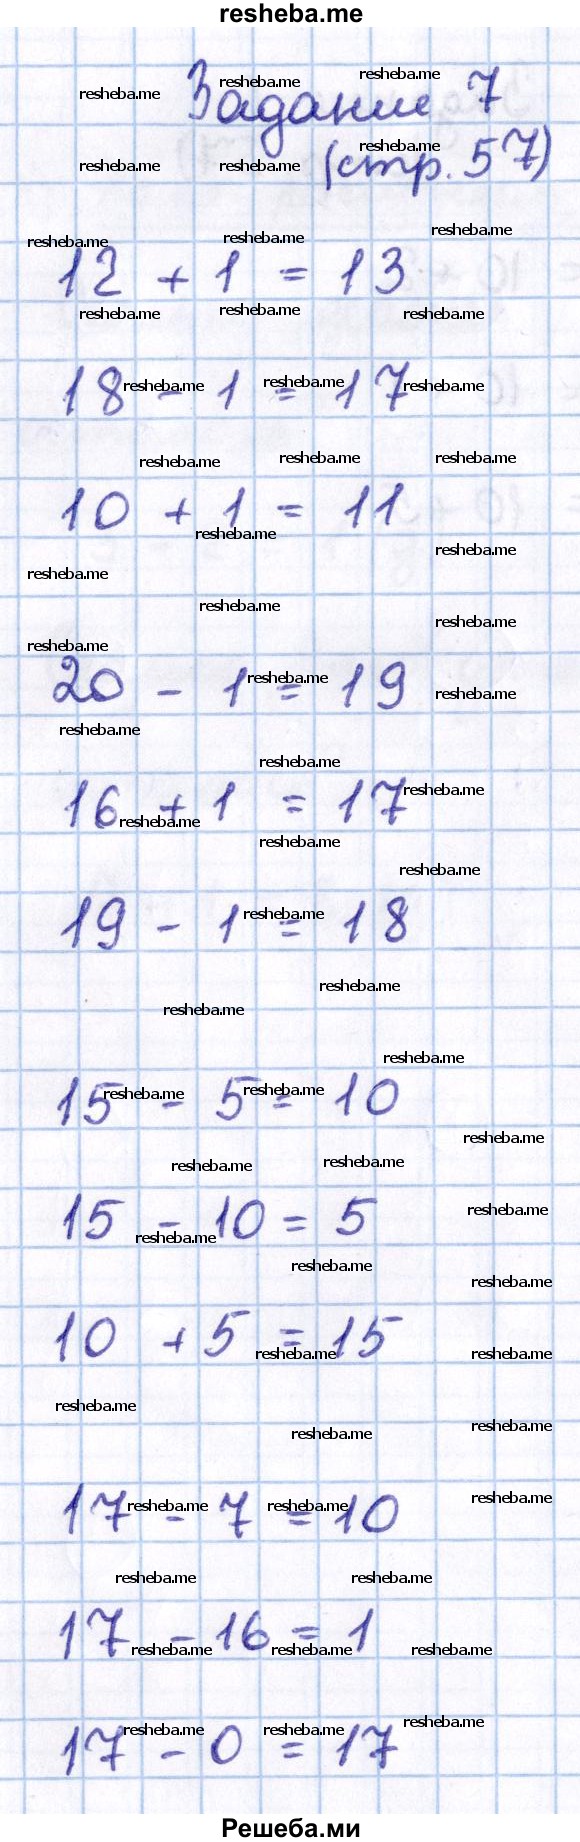 resheba.me
Задание 7
(стр. 57)
12 + 1 = 13
18 - 1 = 17
10 + 1 = 11
20 - 1 = 19
16 + 1 = 17
19 - 1 = 18
15 - 5 = 10
15 - 10 = 5
10 + 5 = 15
17 - 7 = 10
17 - 16 = 1
17 - 0 = 17
Решеба.ми